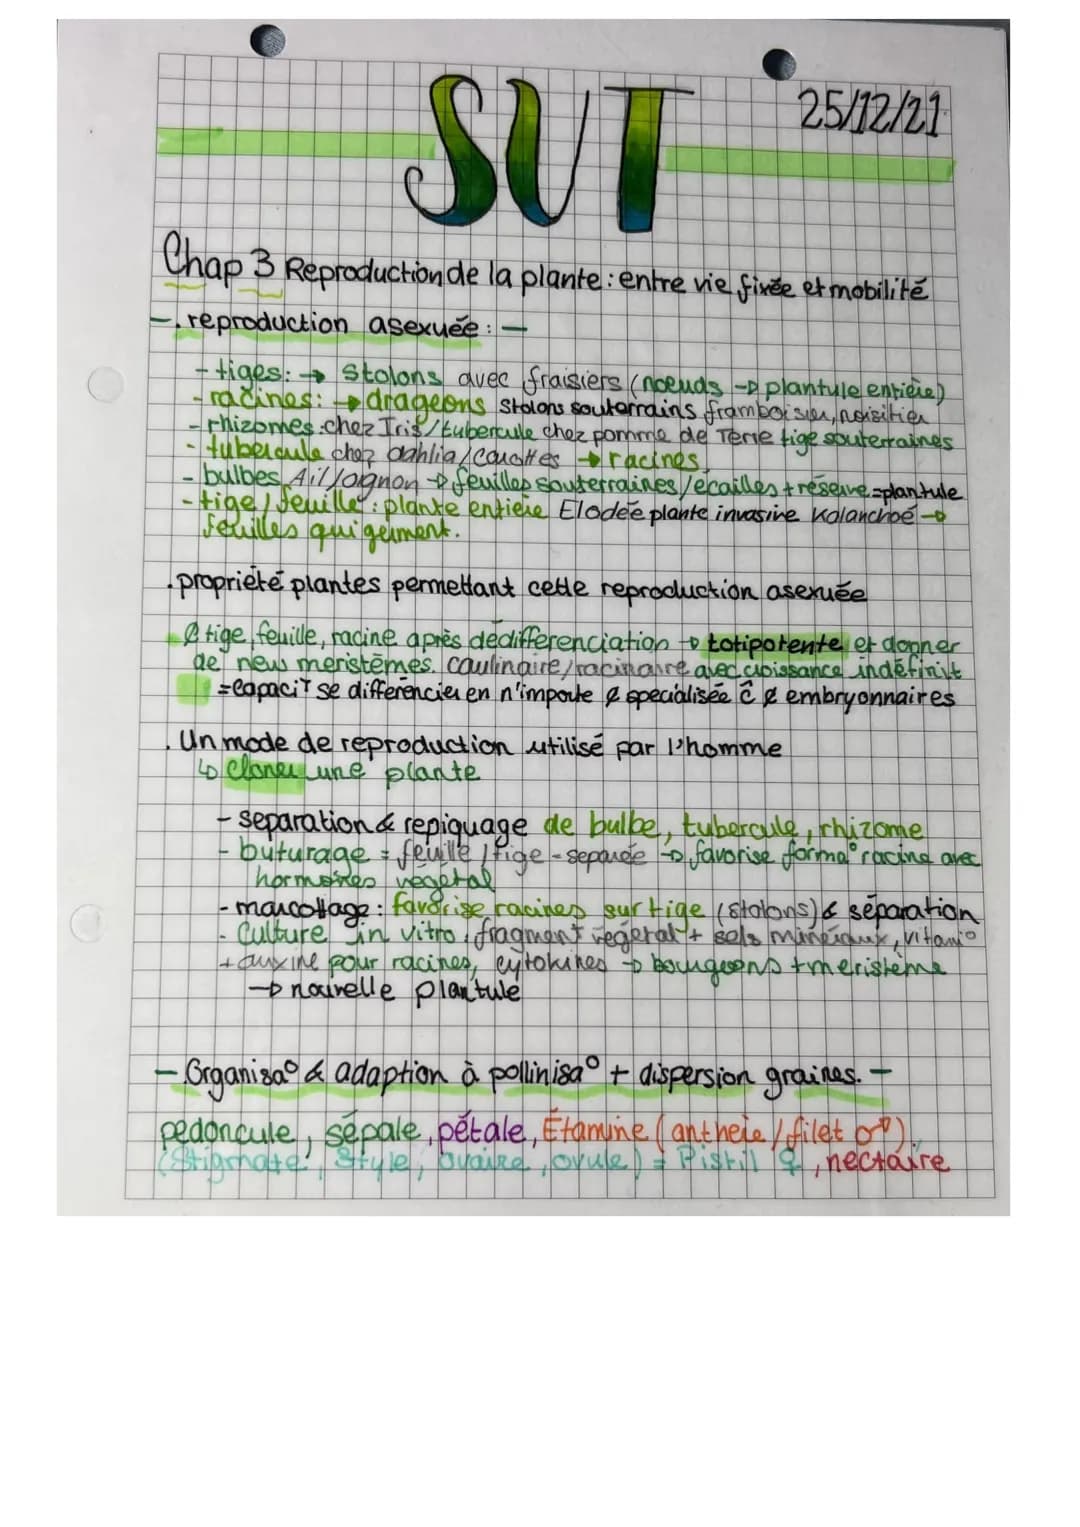 SVT
25/12/21
Chap 3 Reproduction de la plante : entre vie fixée et mobilité
-. reproduction asexuée : -
- tiges : → stolons avec fraisiers (noeuds → plantule entière)
- racines : → drageons stolons souterrains framboisier, noisitier
- rhizomes : chez Iris / tubercule chez pomme de Terre tige souterraines
- tubercule chez dahlia / carottes → racines
- bulbes Ail / oignon → feuilles souterraines / écailles + réserve = plantule
- tige / feuille : plante entière Elodée plante invasive Kalanchoé →
feuilles qui germent.
. propriété plantes permettant cette reproduction asexuée
¢ tige, feuille, racine après dédifferenciation → totipotente et donner
de new meristèmes. caulinaire / racinaire avec croissance indéfinit
= capaciT se différencier en n'importe ¢ specialisée ĉ ¢ embryonnaires
. Un mode de reproduction utilisé par l'homme
↳ cloner une plante
- separation & repiquage de bulbe, tubercule, rhizome
- buturage = feuille / tige - separée → favorise forma° racine avec
hormones végétal
- marcottage : favorise racines sur tige (stolons) & séparation
- Culture in vitro : fragment vegétal + sels minéraux, vitami°
+ auxine pour racines, cytokines → bourgeons + meristème
→ nouvelle plantule
- Organisa° & adaption à pollinisa° + dispersion graines. -
pedoncule, sépale, pétale, Étamine (antheie / filet ♂),
(Stigmate, Style, ovaire, ovule) = Pistil ♀, nectaire